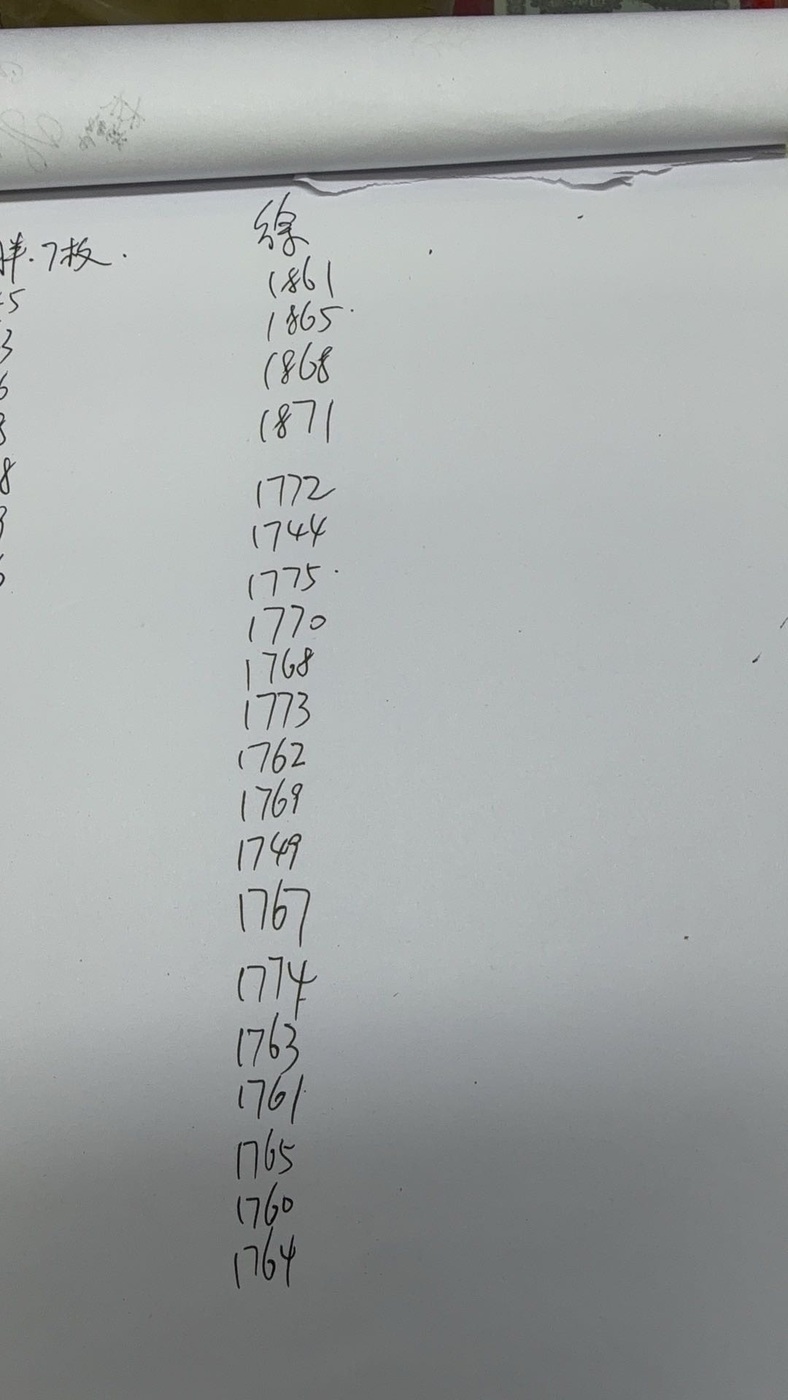 胖.7枚.
5
3
6
8
8
3
徐
1861
1865
1868
1871
1772
1744
1775
1770
1768
1773
1762
1769
1749
1767
1774
1763
1761
1765
1760
1764